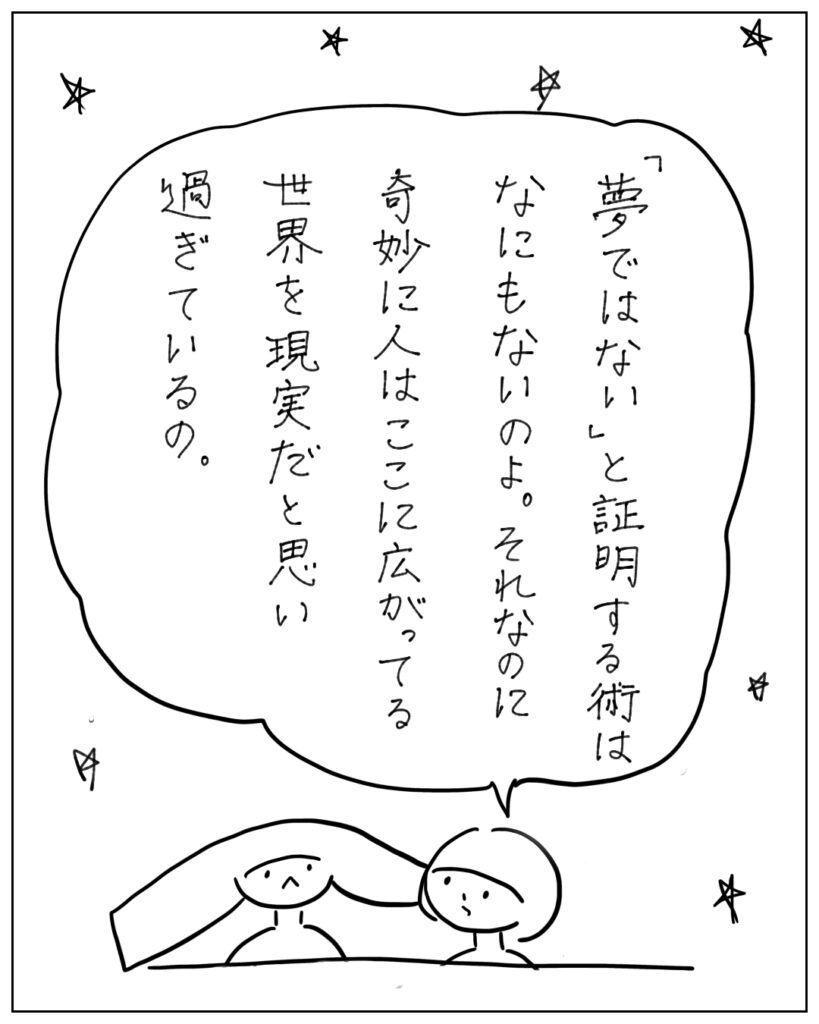 「夢ではない」と証明する術は
なにもないのよ。それなのに
奇妙に人はここに広がってる
世界を現実だと思い
過ぎているの。